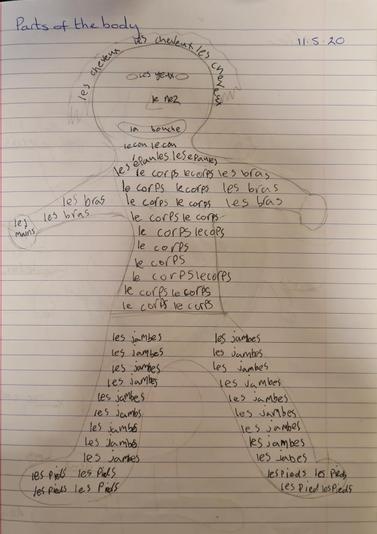 Parts of the body
11.5.20
les cheveux les cheveux les cheveux
les yeux
le nez
la bouche
le cou le cou
les épaules les epaules
le corps le corps les bras
le corps le corps les bras
les bras le corps le corps les bras
les bras le corps le corps
les mains
le corps le corps
le corps
le corps
le corps le corps
le corps le corps
le corps le corps
les jambes les jambes
les jambes les jambes
les jambes les jambes
les jambes les jambes
les jambes les jambes
les jambs les jambes
les jambs les jambes
les jambes les jambes
les jambes les jabes
les pieds les pieds les pieds les pieds
les pieds les pieds les pied les pieds